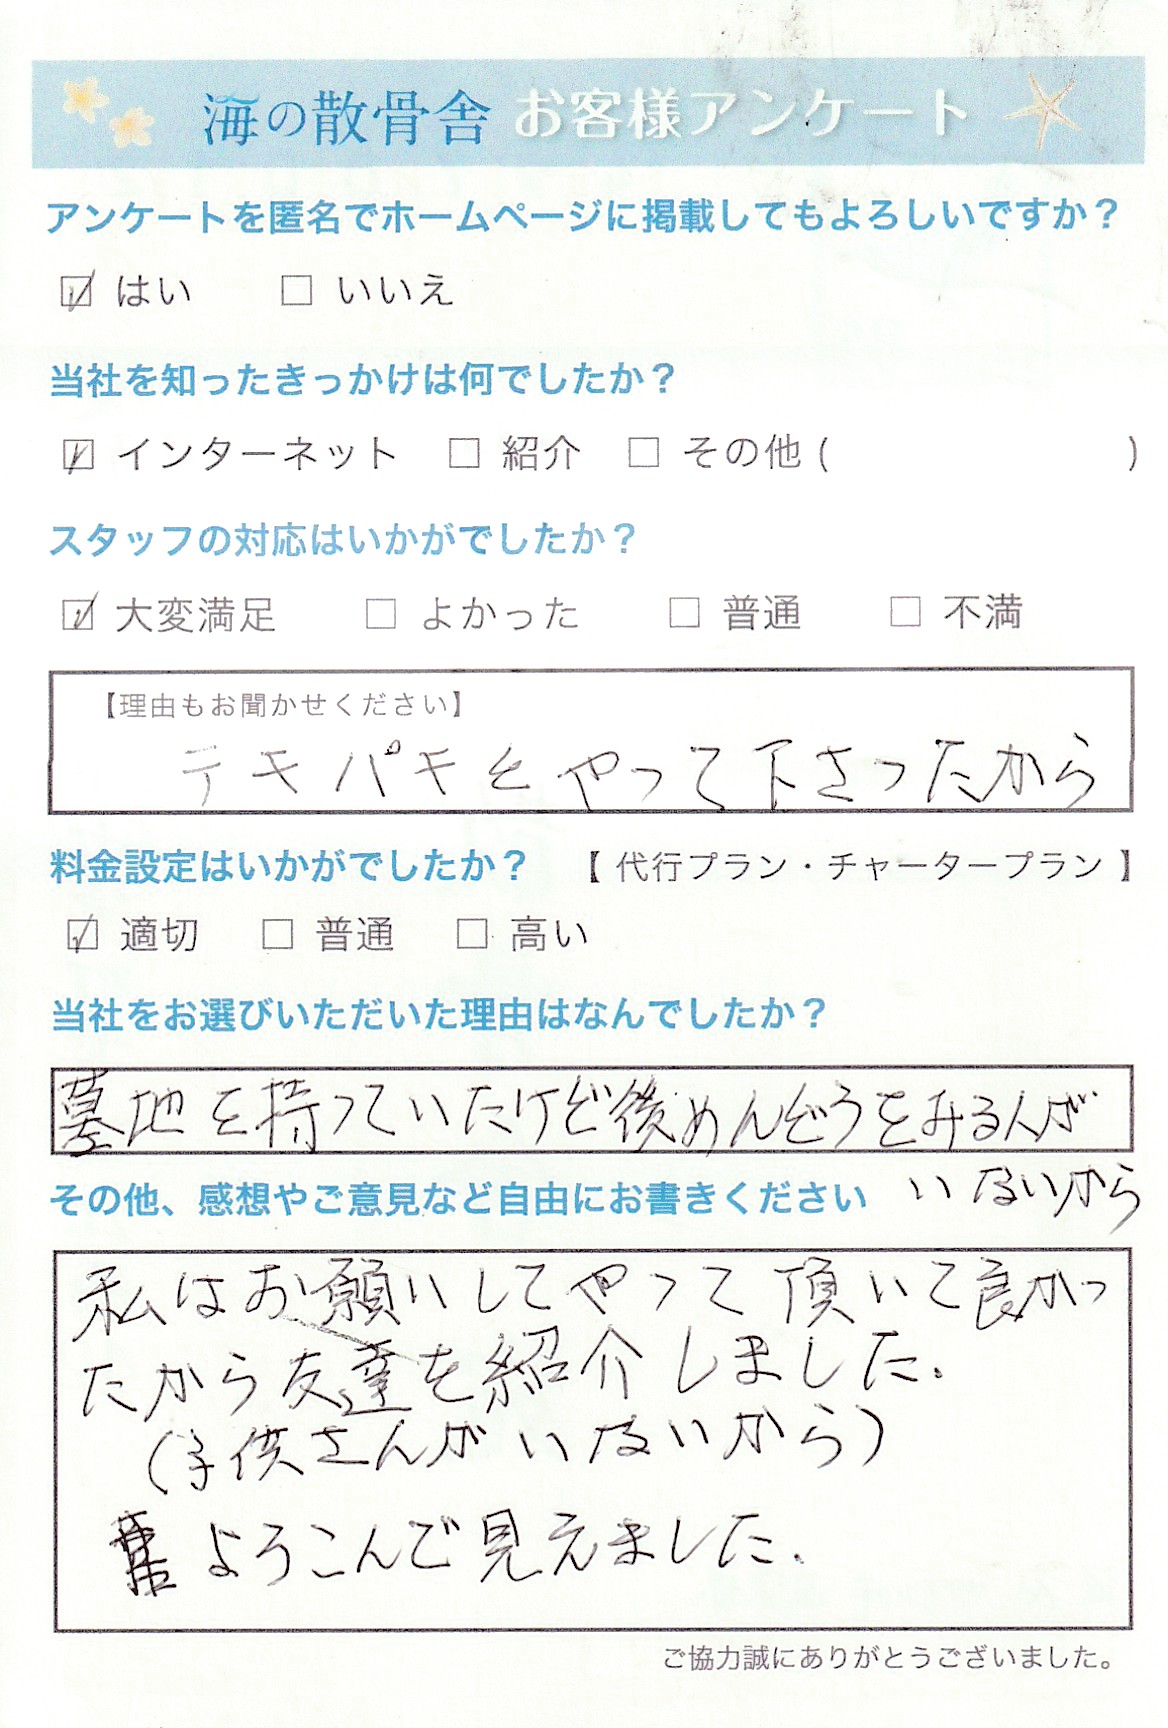 海の散骨舎 お客様アンケート
アンケートを匿名でホームページに掲載してもよろしいですか？
☑ はい ☐ いいえ
当社を知ったきっかけは何でしたか？
☑ インターネット ☐ 紹介 ☐ その他 ( )
スタッフの対応はいかがでしたか？
☑ 大変満足 ☐ よかった ☐ 普通 ☐ 不満
【理由もお聞かせください】
テキパキとやって下さったから
料金設定はいかがでしたか？ 【 代行プラン・チャータープラン 】
☑ 適切 ☐ 普通 ☐ 高い
当社をお選びいただいた理由はなんでしたか？
墓地を持っていたけど後めんどうをみる人が
いないから
その他、感想やご意見など自由にお書きください
私はお願いしてやって頂いて良かっ
たから友達を紹介しました.
(子供さんがいないから)
よろこんで見えました.
ご協力誠にありがとうございました。